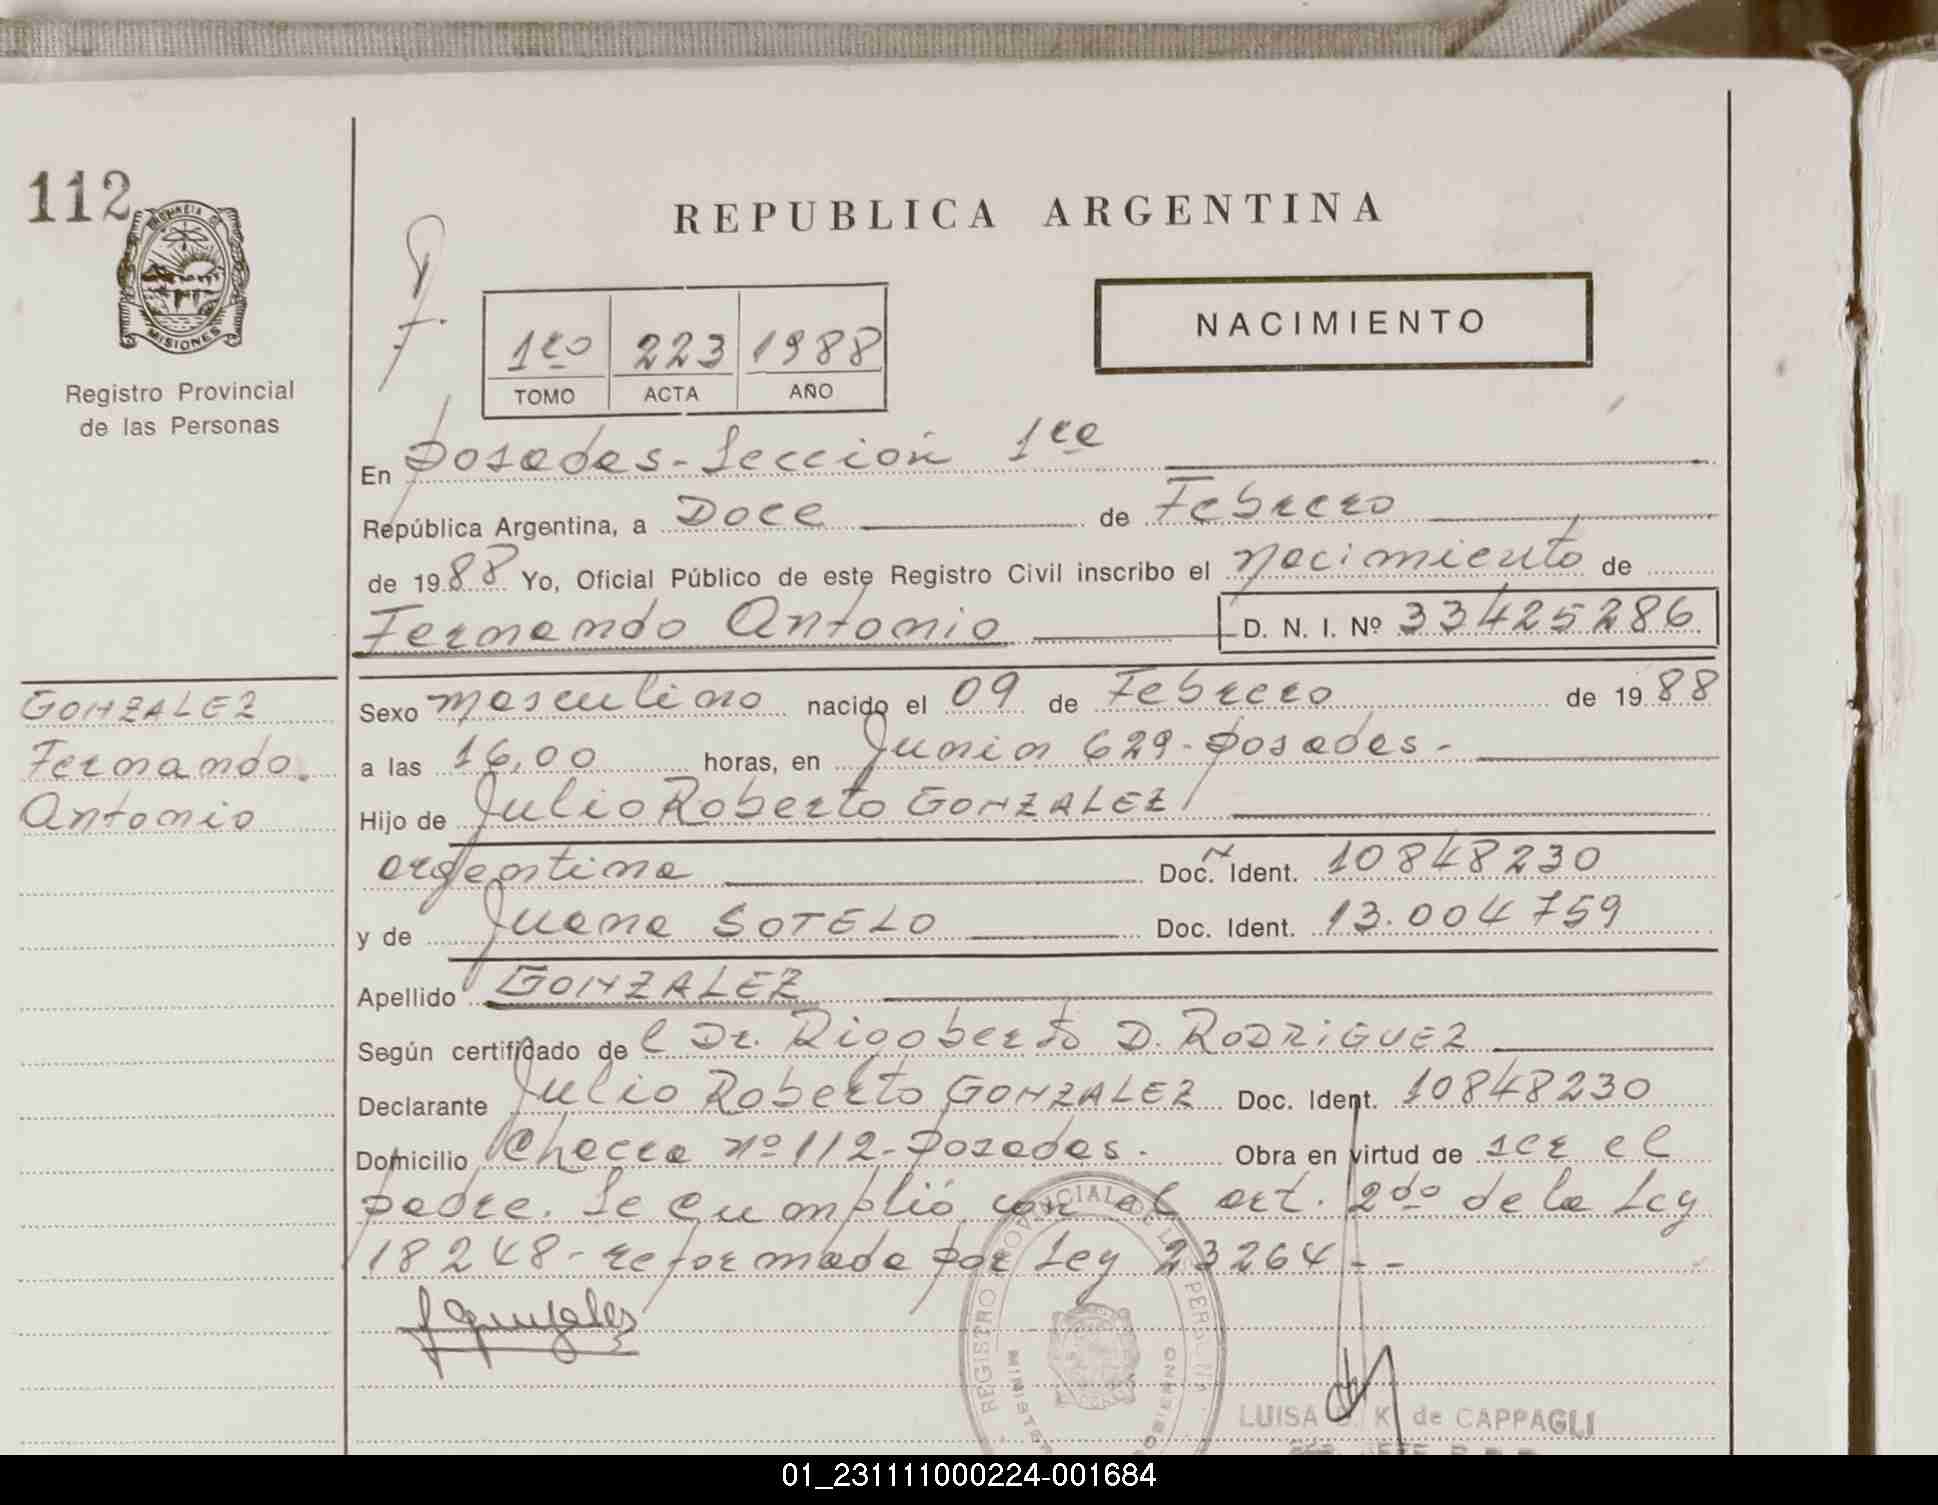 112
PROVINCIA DE
MISIONES
Registro Provincial
de las Personas
GONZALEZ
Fernando
Antonio
REPUBLICA ARGENTINA
NACIMIENTO
1ro 223 1988
TOMO ACTA AÑO
En Posadas - Sección 1ra
República Argentina, a Doce de Febrero
de 1988 Yo, Oficial Público de este Registro Civil inscribo el nacimiento de
Fernando Antonio D. N. I. Nº 33425286
Sexo masculino nacido el 09 de Febrero de 1988
a las 16,00 horas, en Junin 629 - Posadas -
Hijo de Julio Roberto GONZALEZ
argentino Doc. Ident. 10848230
y de Juana SOTELO Doc. Ident. 13.004759
Apellido GONZALEZ
Según certificado del Dr. Rigoberto D. RODRiGUEZ
Declarante Julio Roberto GONZALEZ Doc. Ident. 10848230
Domicilio Chacra nº 112 - Posadas. Obra en virtud de ser el
padre. Se cumplió con el art. 2do de la Ley
18248 - reformada por Ley 23264 - -
REGISTRO PROVINCIAL DE LAS PERSONAS
LUISA K. de CAPPAGLI
01_231111000224-001684